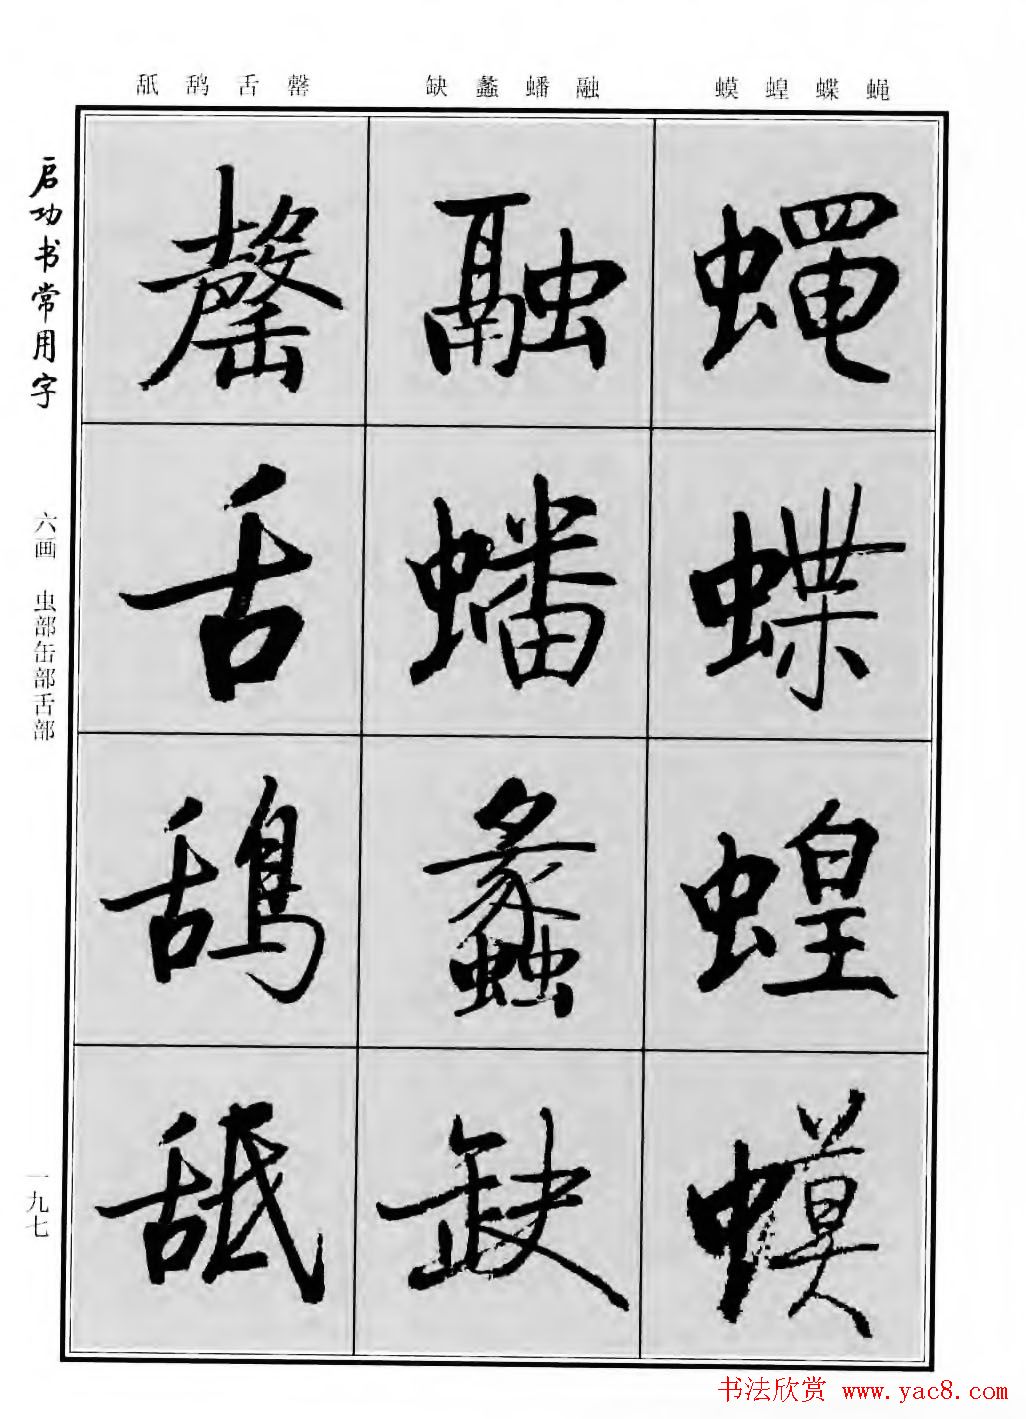 舐 鸹 舌 罄 缺 蠡 蟠 融 蟆 蝗 蝶 蝇
启功书常用字
六画 虫部缶部舌部
一九七
蝇
蝶
蝗
蟆
融
蟠
蠡
缺
罄
舌
鸹
舐
书法欣赏 www.yac8.com